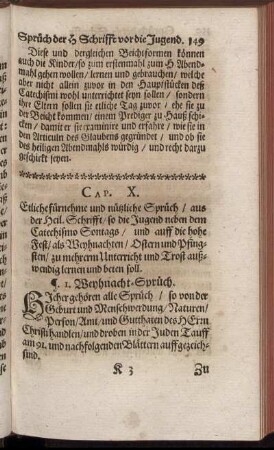 Sprüch der H Schrifft vor die Jugend. 149
Diese und dergleichen Beichtformen können
auch die Kinder / so zum erstenmahl zum H Abend-
mahl gehen wollen / lernen und gebrauchen / welche
aber nicht allein zuvor in den Hauptstücken deß
Catechismi wohl unterrichtet seyn sollen / sondern
ihre Eltern sollen sie etliche Tag zuvor / ehe sie zu
der Beicht kommen / einem Prediger zu Hauß schi-
cken / damit er sie examinire und erfahre / wie sie in
den Articuln des Glaubens gegründet / und ob sie
des heiligen Abendmahls würdig / und recht darzu
geschickt seyen.
CAP. X.
Etliche fürnehme und nützliche Sprüch / aus
der Heil. Schrifft / so die Jugend neben dem
Catechismo Sontags / und auff die hohe
Fest / als Weyhnachten / Ostern und Pfing-
sten / zu mehrerm Unterricht und Trost auß-
wendig lernen und beten soll.
¶. 1. Weyhnacht-Sprüch.
HIeher gehören alle Sprüch / so von der
Geburt und Menschwerdung / Naturen /
Person / Amt / und Gutthaten des HErrn
Christi handlen / und droben in der Juden Tauff
am 91. und nachfolgenden Blättern auffgezeich-
net sind.
K 3 Zu